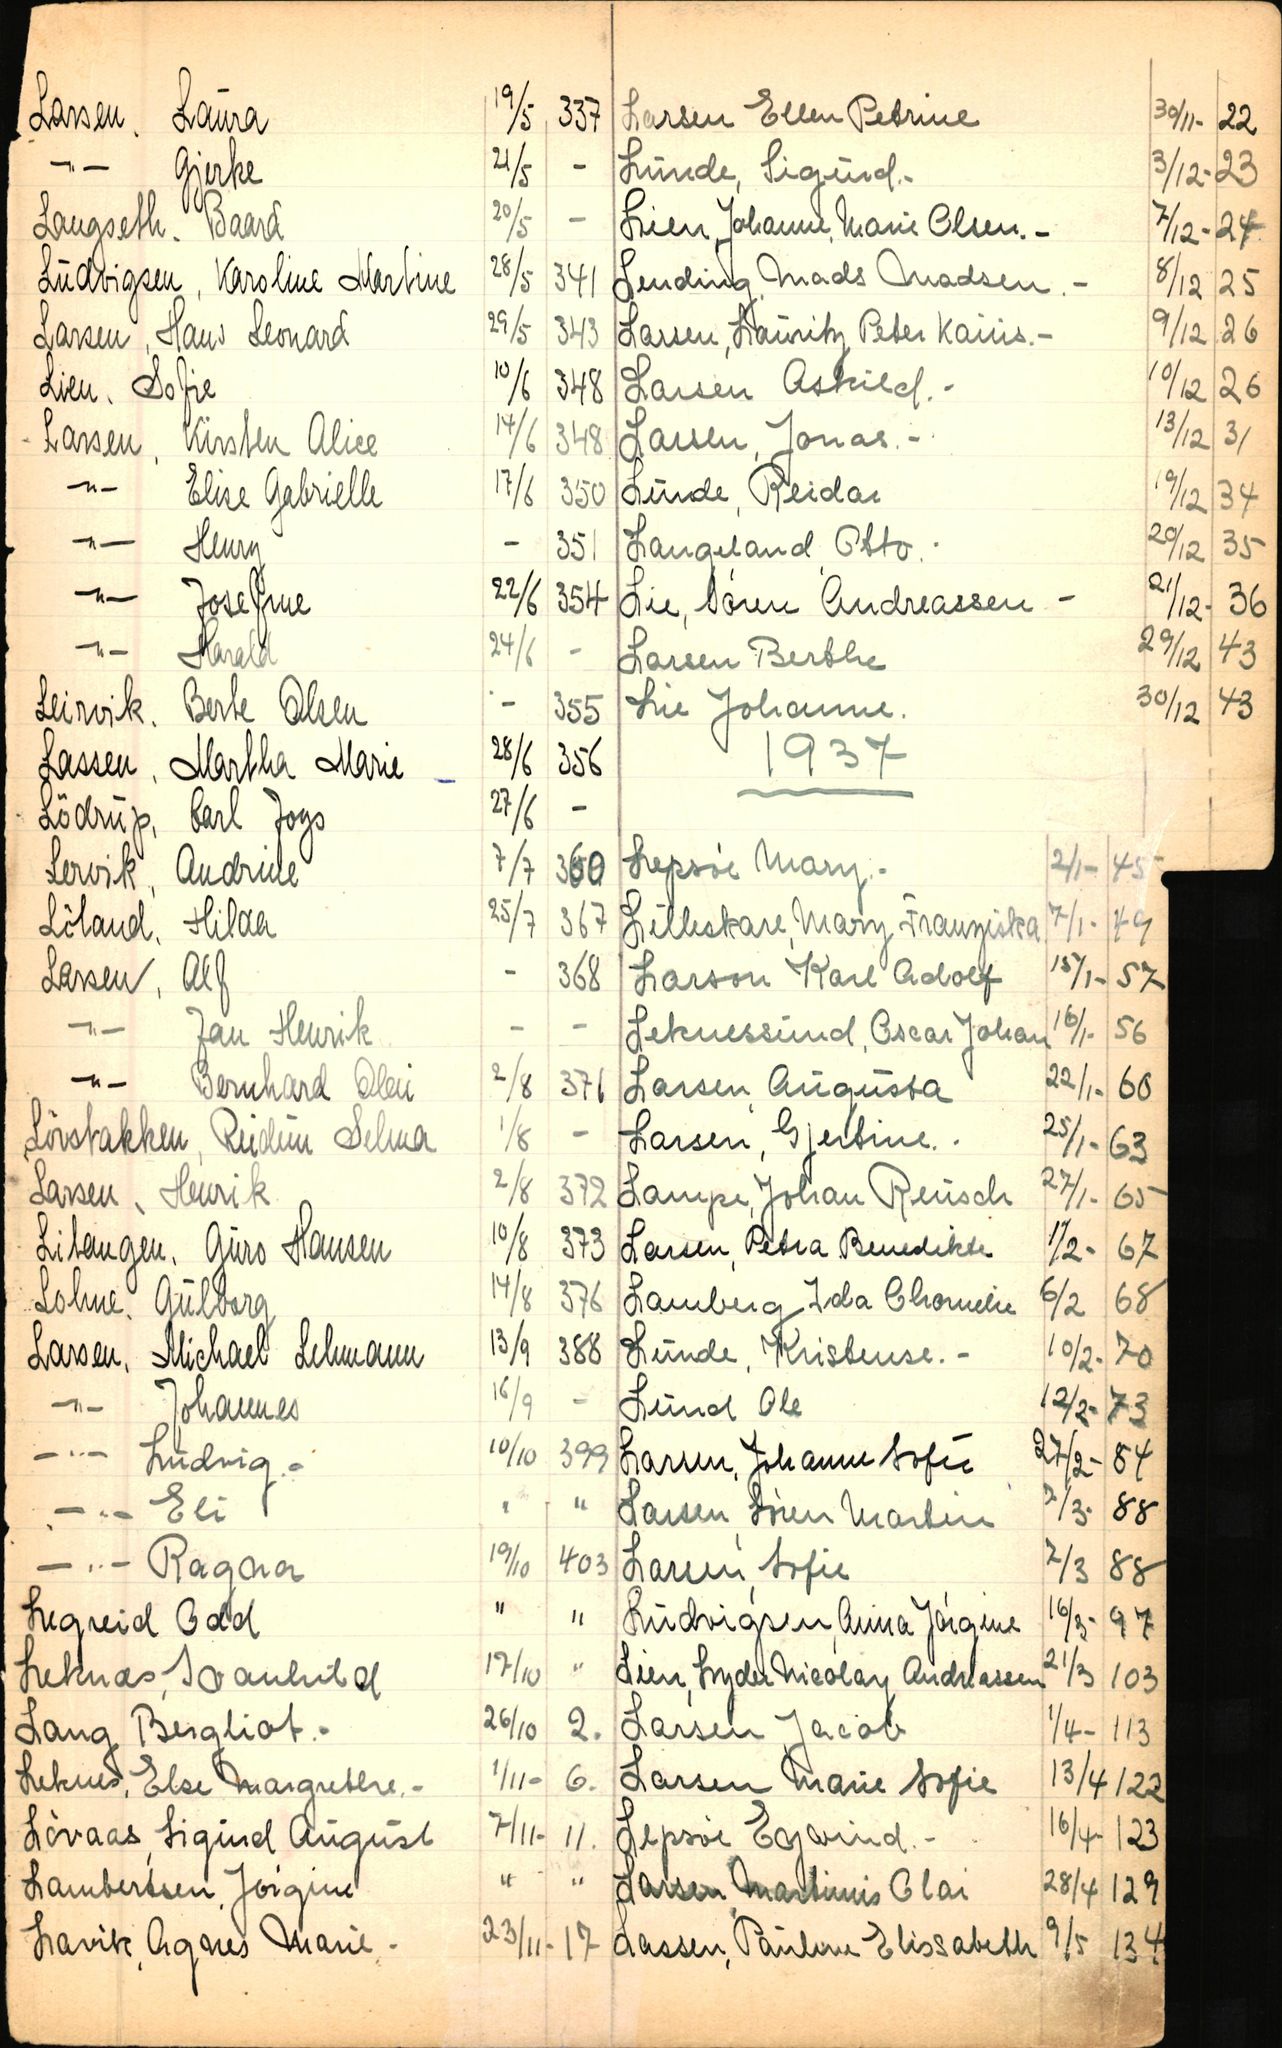 Larsen, Laura 19/5 337
-"- Gjerke 21/5 -
Langseth. Baard 20/5 -
Ludvigsen, Karoline Martine 28/5 341
Larsen, Hans Leonard 29/5 343
Lien, Sofie 10/6 348
Larsen, Kirsten Alice 14/6 348
-"- Elise Gabrielle 17/6 350
-"- Henry - 351
-"- Josefine 22/6 354
-"- Harald 24/6 -
Leirvik. Berte Olsen - 355
Lassen, Martha Marie 28/6 356
Lödrup, Carl Joys 27/6 -
Lervik, Andrine 7/7 360
Löland, Hilda 25/7 367
Larsen, Alf - 368
-"- Jan Henrik - -
-"- Bernhard Olai 2/8 371
Lövstakken, Reidun Selma 1/8 -
Larsen, Henrik 2/8 372
Litangen, Guro Hansen 10/8 373
Lohne, Gulborg 14/8 376
Larsen, Michael Lehmann 13/9 388
-"- Johannes 16/9 -
-"- Ludvig.- 10/10 399
-"- Eli " "
-"- Ragna 19/10 403
Legreid Odd " "
Leknas, Svanhild 17/10 "
Lang Bergliot.- 26/10 2.
Leknes, Else Margrethe.- 1/11- 6.
Lövaas, Sigurd August 7/11- 11.
Lambertsen, Jörgine " "
Lavik, Agnes Marie.- 23/11- 17
Larsen Ellen Petrine 30/11- 22
Lunde, Sigurd.- 3/12- 23
Lien, Johanne, Marie Olsen.- 7/12- 24
Lending, Mads Madsen.- 8/12 25
Larsen, Lauritz Peter Kaius.- 9/12 26
Larsen Askild.- 10/12 26
Larsen, Jonas.- 13/12 31
Lunde, Reidar 19/12 34
Langeland, Otto. 20/12 35
Lie, Sören Andreassen - 21/12- 36
Larsen Berthe 29/12 43
Lie Johanne. 30/12 43
1937
Lepsöe Mary.- 2/1- 45
Lilleskare, Mary Franziska 7/1- 49
Larson Karl Adolf 15/1- 57
Leknessund, Oscar Johan 16/1- 56
Larsen, Augusta 22/1- 60
Larsen, Gjertine. 25/1- 63
Lampe, Johan Reusch 27/1- 65
Larsen, Petra Benedikte 1/2- 67
Lamberg Ida 6/2 68
Lunde, Kristense.- 10/2- 70
Lund Ole 12/2- 73
Larsen, Johanne Sofie 27/2- 84
Larsen, Sören Martin 7/3- 88
Larsen, Sofie 7/3 88
Ludvigsen, Anna Jörgine 16/3- 97
Lien, Lyder Nicolay Andreassen 21/3 103
Larsen Jacob 1/4- 113
Larsen Marie Sofie 13/4 122
Lepsöe Eyvind.- 16/4- 123
Larsen, Martinus Olai 28/4 129
Lassen, Pauline Elissabeth 9/5 134